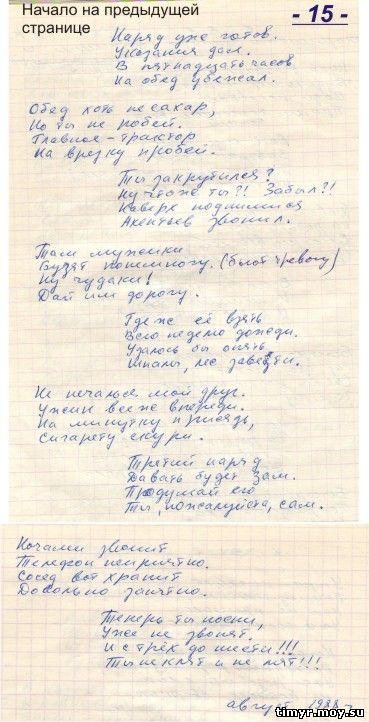 Начало на предыдущей
странице
- 15 -
Наряд уже готов.
Указания дал.
В пятнадцать часов
На обед убежал.
Обед хоть не сахар,
Но ты не робей.
Главное - трактор
На врезку пробей.
Ты закрутился?
Ну что же ты?! Забыл?!
Наверх поднимися
Акентьев звонил.
Там мужики
Бузят понемногу. (бьют тревогу)
Ну чудаки!
Дай им дорогу.
Где ж её взять
Всю неделю дожди.
Удалось бы опять
Шпалы, лес завезти.
Не печалься мой друг.
Ужин всё же впереди.
На минутку присядь,
Сигарету скури.
Третий наряд
Давать будет Зам.
Продумай его
Ты, пожалуйста, сам.
Ночами звонит
Телефон неприятно.
Сосед вот храпит
Довольно занятно.
Теперь ты поспи,
Уже не звонят.
И с трёх до шести!!!
Ты не клят и не мят!!!
август
timyr-moy.su